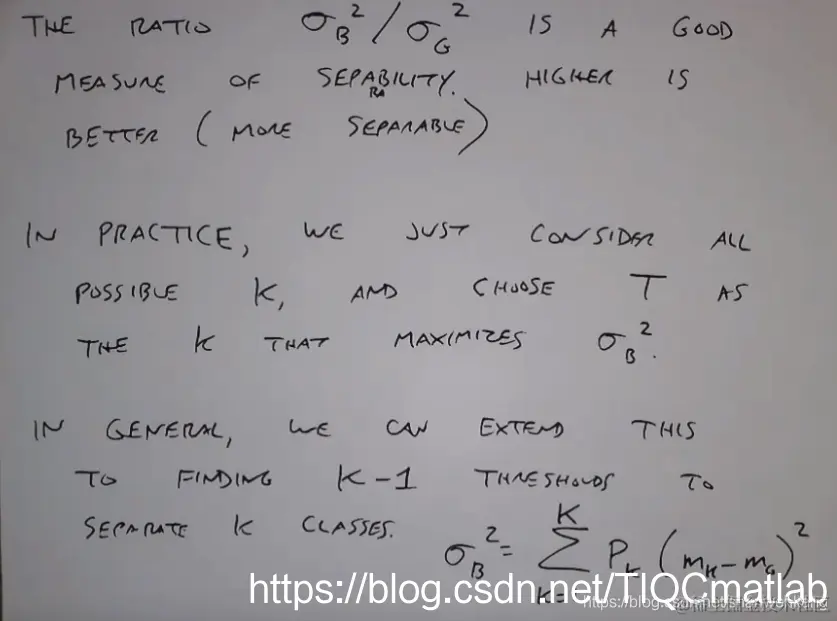 THE RATIO σ_B²/σ_G² IS A GOOD
MEASURE OF SEPABILITY. HIGHER IS
RA
BETTER (MORE SEPARABLE)
IN PRACTICE, WE JUST CONSIDER ALL
POSSIBLE K, AND CHOOSE T AS
THE K THAT MAXIMIZES σ_B².
IN GENERAL, WE CAN EXTEND THIS
TO FINDING K-1 THRESHOLDS TO
SEPARATE K CLASSES.
σ_B² = Σ^K P_k (m_k - m_G)²
https://blog.csdn.net/TIQCmatlab